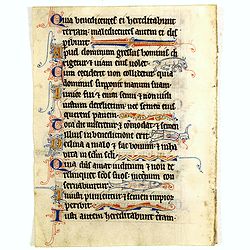 Quia benedicentes ei hereditabunt
terram: maledicentes autem ei dis
peribunt
Apud dominum gressus hominis di
rigetur: et viam eius volet
Cum ceciderit non collidetur: quia
dominus supponit manum suam
Iunior fui et enim senui: et non vidi
iustum derelictum nec semen eius
querens panem
Tota die miseretur et comodat: et semen
illius in benedictione erit
Declina a malo et fac bonum: et inha
bita in seculum seculi
Quia dominus amat iudicium et non de
relinquet sanctos suos: in eternum con
servabuntur
Iniusti punientur: et semen impiorum
peribit
Iusti autem hereditabunt terram